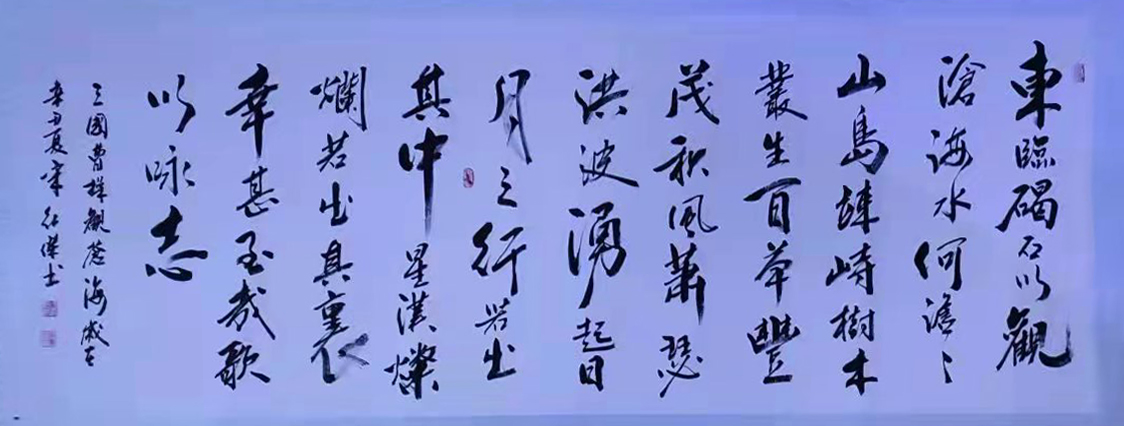 東臨碣石以觀
滄海水何澹々
山島竦峙樹木
叢生百草豐
茂秋風蕭瑟
洪波湧起日
月之行若出
其中星漢燦
爛若出其裏
幸甚至哉歌
以咏志
三國曹操觀滄海
辛丑夏